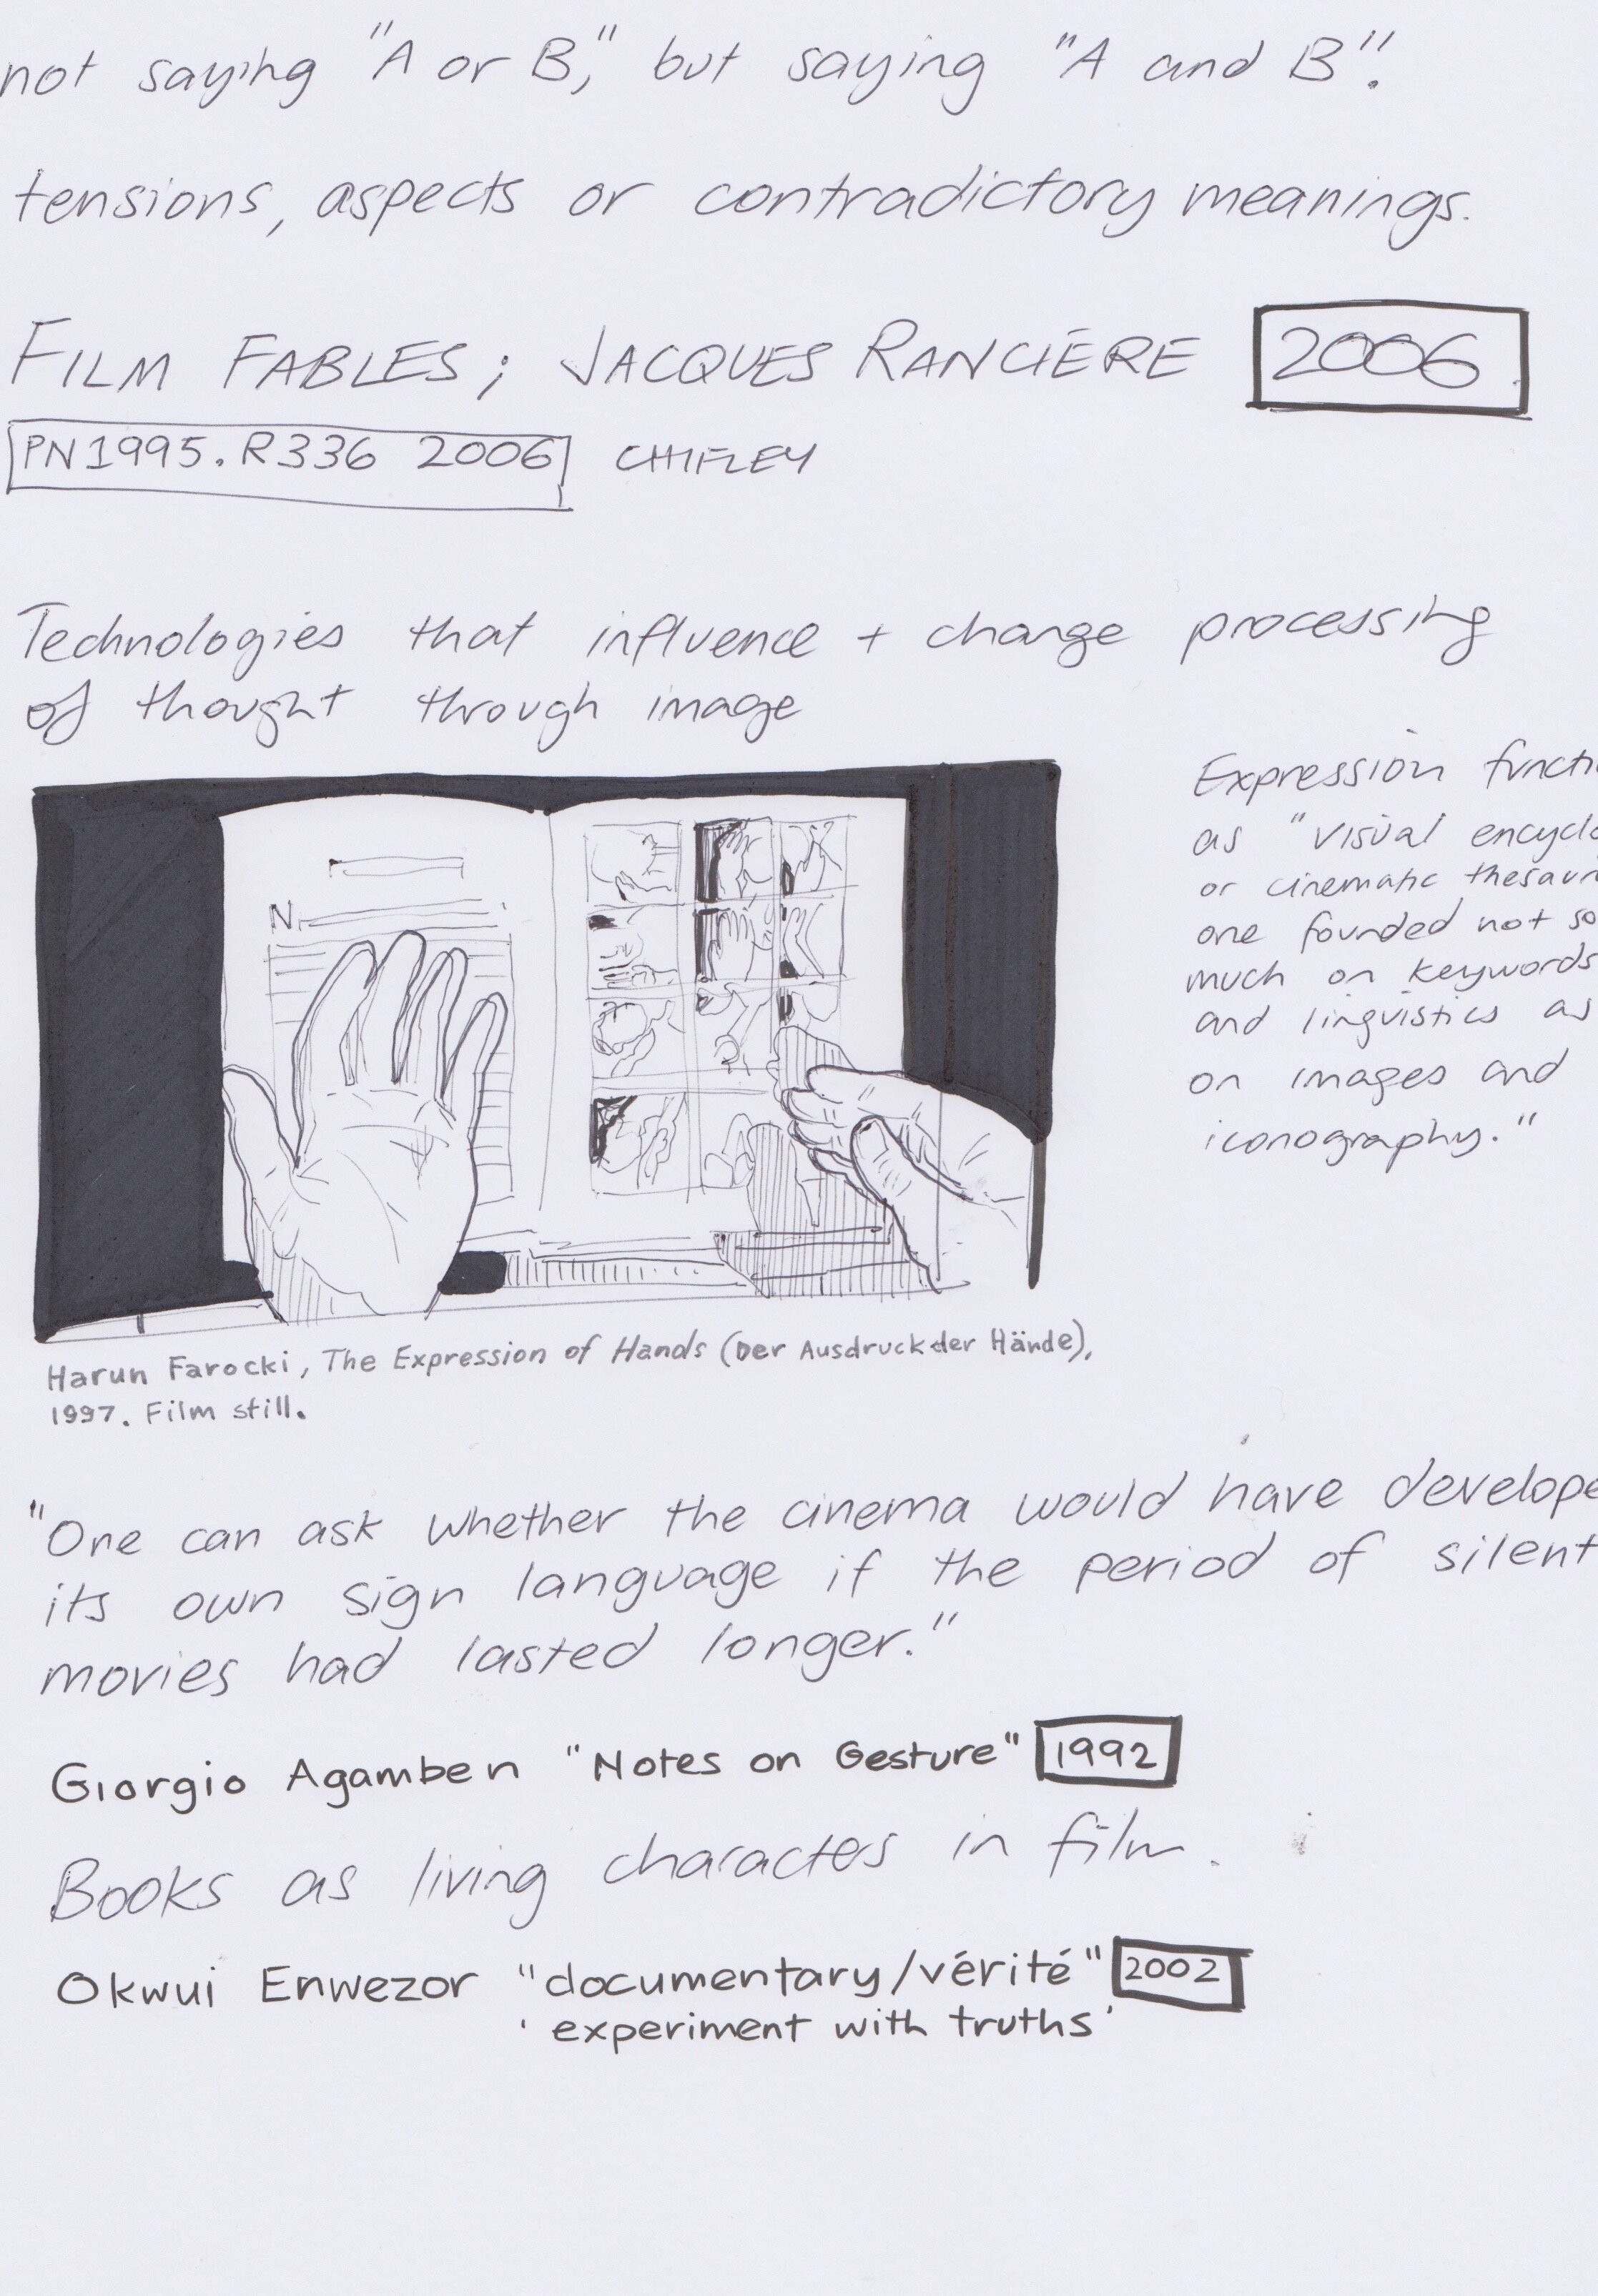 not saying "A or B," but saying "A and B".
tensions, aspects or contradictory meanings.
FILM FABLES; JACQUES RANCIÈRE 2006
PN1995.R336 2006 CHIFLEY
Technologies that influence + change processing
of thought through image
Expression functi
as "visual encyclo
or cinematic thesaur
one founded not so
much on keywords
and linguistics as
on images and
iconography."
N
Harun Farocki, The Expression of Hands (Der Ausdruck der Hände),
1997. Film still.
"One can ask whether the cinema would have develope
its own sign language if the period of silent
movies had lasted longer."
Giorgio Agamben "Notes on Gesture" 1992
Books as living characters in film.
Okwui Enwezor "documentary/vérité" 2002
'experiment with truths'